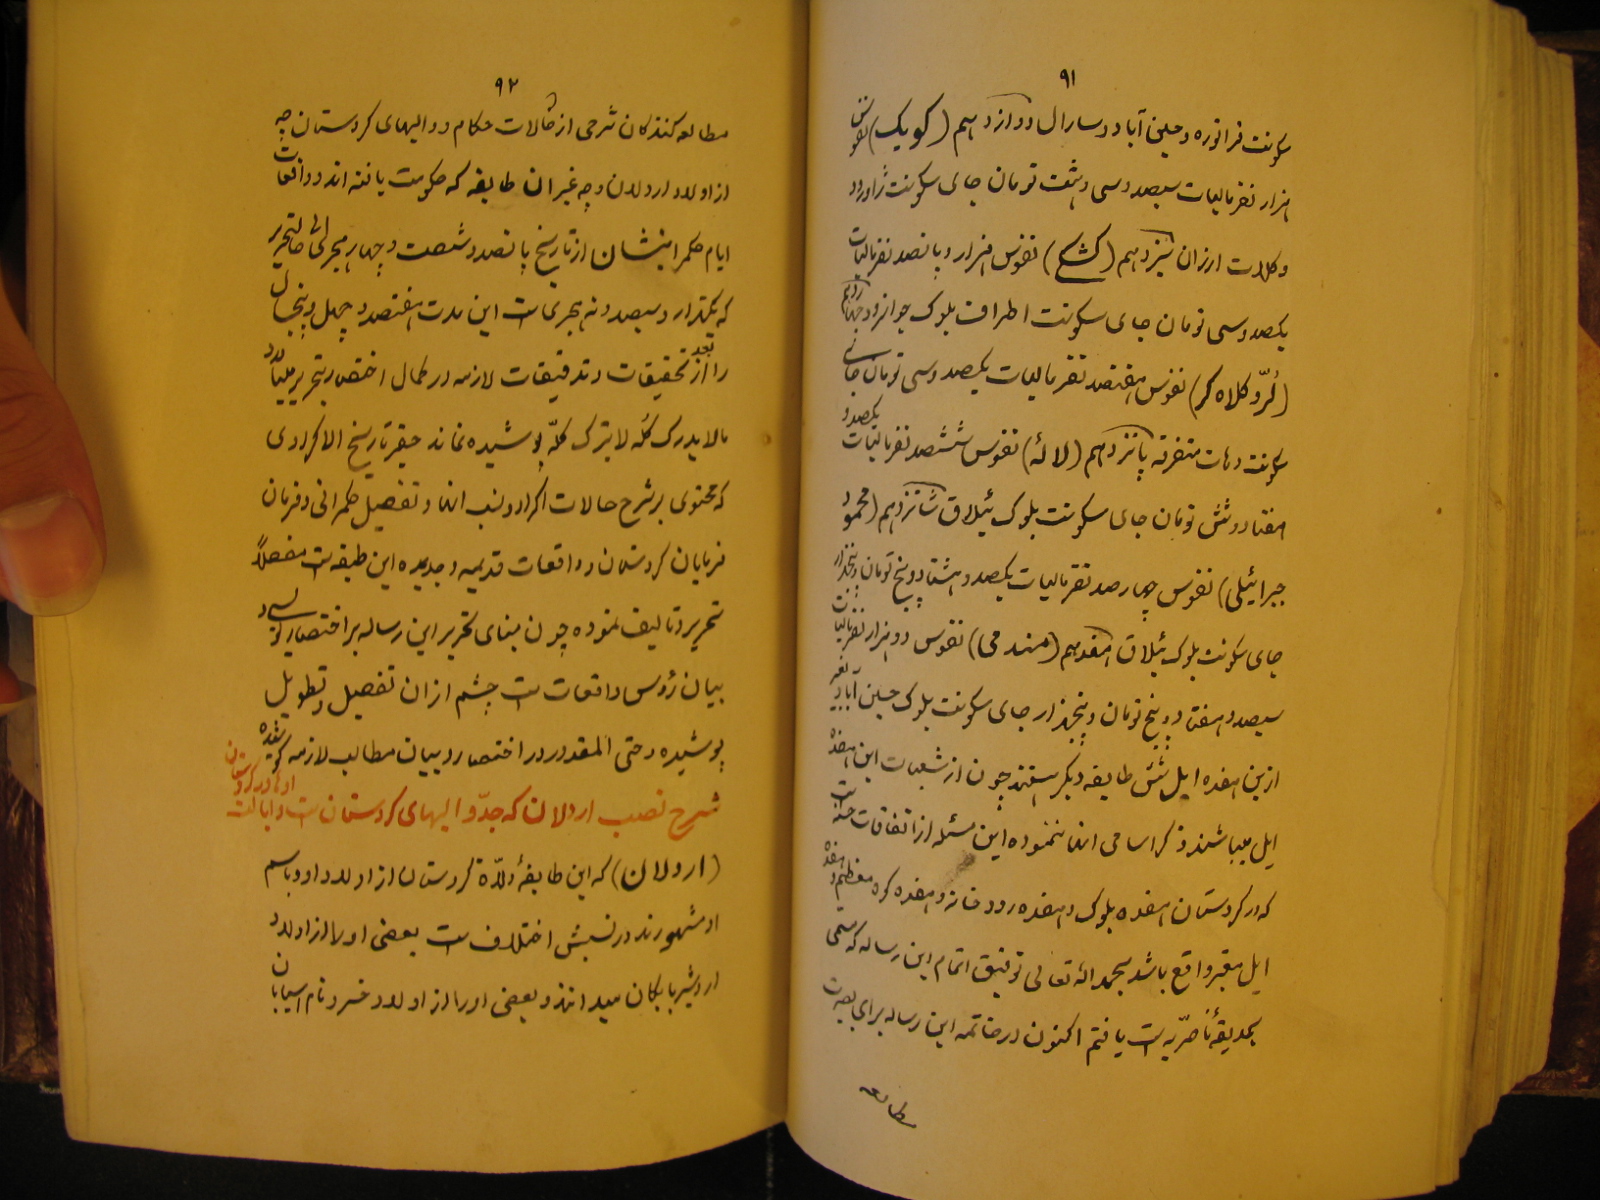 ۹۱
سکونت قراتوره و حسین آباد و سارال دوازدهم (کویک) نفوس
هزار نفر مالیات سیصد و سی و هشت تومان جای سکونت ژاورود
و کلات ارزان سیزدهم (کشکی) نفوس هزار و پانصد نفر مالیات
یکصد و سی تومان جای سکونت اطراف بلوک جوانرود چهاردهم
(لُرّ و کلاه کر) نفوس هفتصد نفر مالیات یکصد و سی تومان جای
سکونت دهات متفرقه پانزدهم (لالهٔ) نفوس ششصد نفر مالیات یکصد و
هفتاد و شش تومان جای سکونت بلوک ییلاق شانزدهم (محمود
جبرائیلی) نفوس چهارصد نفر مالیات یکصد و هشتاد و پنج تومان و پنجهزار
جای سکونت بلوک ییلاق هفدهم (مندمی) نفوس دو هزار نفر مالیات
سیصد و هفتاد و پنج تومان و پنجهزار جای سکونت بلوک حسین آباد بغیر
ازین هفده ایل شش طایفه دیگر هستند چون از شعبات این هفده
ایل میباشند ذکر اسامی آنها ننموده این مسئله از اتفاقات حسنه است
که در کردستان هفده بلوک و هفده رودخانه و هفده کوه معظم و هفده
ایل معتبر واقع باشد بحمد الله تعالی توفیق اتمام این رساله که مسمی
بحدیقهٔ ناصریه است یافتم اکنون در خاتمه این رساله برای بصیرت
مطالعه
۹۲
مطالعه کنندکان شرحی از حالات حکام و والیهای کردستان چه
از اولاد اردلان و چه غیر ان طایفه که حکومت یافته اند و واقعات
ایام حکمرانیشان از تاریخ پانصد و شصت و چهار هجری الی حال تحریر
که یکهزار و سیصد و نه هجری است این مدت هفتصد و چهل و پنجسال
را بعد از تحقیقات و تدقیقات لازمه در کمال اختصار بتحریر میآید
ما لا یدرک کُله لا یترک کلّه پوشیده نماند حقیر تاریخ الاکرادی
که محتوی بر شرح حالات اکراد و نسب آنها و تفصیل حکمرانی و فرمان
فرمایان کردستان و واقعات قدیمه و جدیده این طبقه است مفصلاً
تحریر و تالیف نموده چون مبنای تحریر این رساله بر اختصار نویسی و
بیان رؤس واقعات است چشم از ان تفصیل و تطویل
پوشیده و حتی المقدور در اختصار و بیان مطالب لازمه کوشیده
شرح نصب اردلان که جدّ والیهای کردستان است و ایالت او در کردستان
(اردلان) که این طایفهٔ ولّاة کردستان از اولاد او و باسم
او مشهورند در نسبش اختلاف است بعضی او را از اولاد
اردشیر بابکان میدانند و بعضی او را از اولاد خسرو نام آسیابان